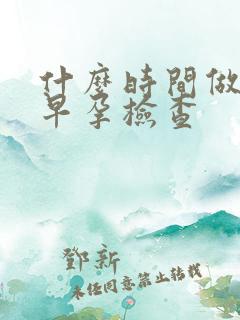 什麼時間做
早孕檢查
鄧新
未经同意禁止转载